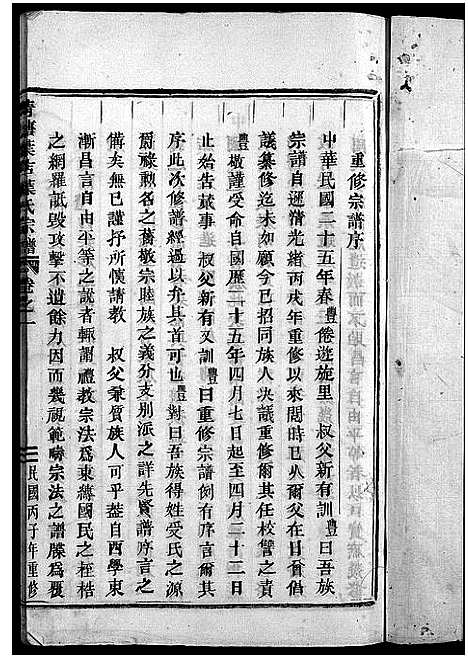 重修宗譜序
中華民國二十五年春豊倦遊旋里 叔父新有訓豊曰吾族
宗譜自遜清光緒丙戌年重修以來閱時已久爾父在日曾倡
議纂修迄未如願今已招同族人決議重修爾其任校讐之責
豊敬謹受命自國歷二十五年四月七日起至四月二十二日
止始告蕆事達 叔父新有又訓豊曰重修宗譜例有序言爾其
序此次修譜經過以弁其首可也豊對曰吾族得姓受氏之源
爵祿勲名之舊敬宗睦族之義分支別派之詳先賢譜序言之
備矣無已謹抒所懷請教 叔父兼質族人可乎蓋自西學東
漸昌言自由平等之說者輒謝禮教宗法爲東縛國民之桎梏
之網羅詆毀攻擊不遺餘力因而蔑視範疇宗法之譜牒爲覆
葉氏宗譜 卷之一
民國丙子年重修